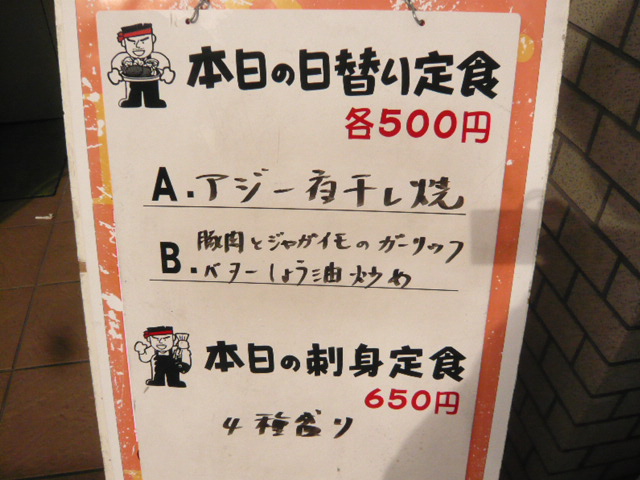 本日の日替り定食
各500円
A.アジ一夜干し焼
豚肉とジャガイモのガーリック
B.バターしょう油炒め
本日の刺身定食
650円
4種盛り